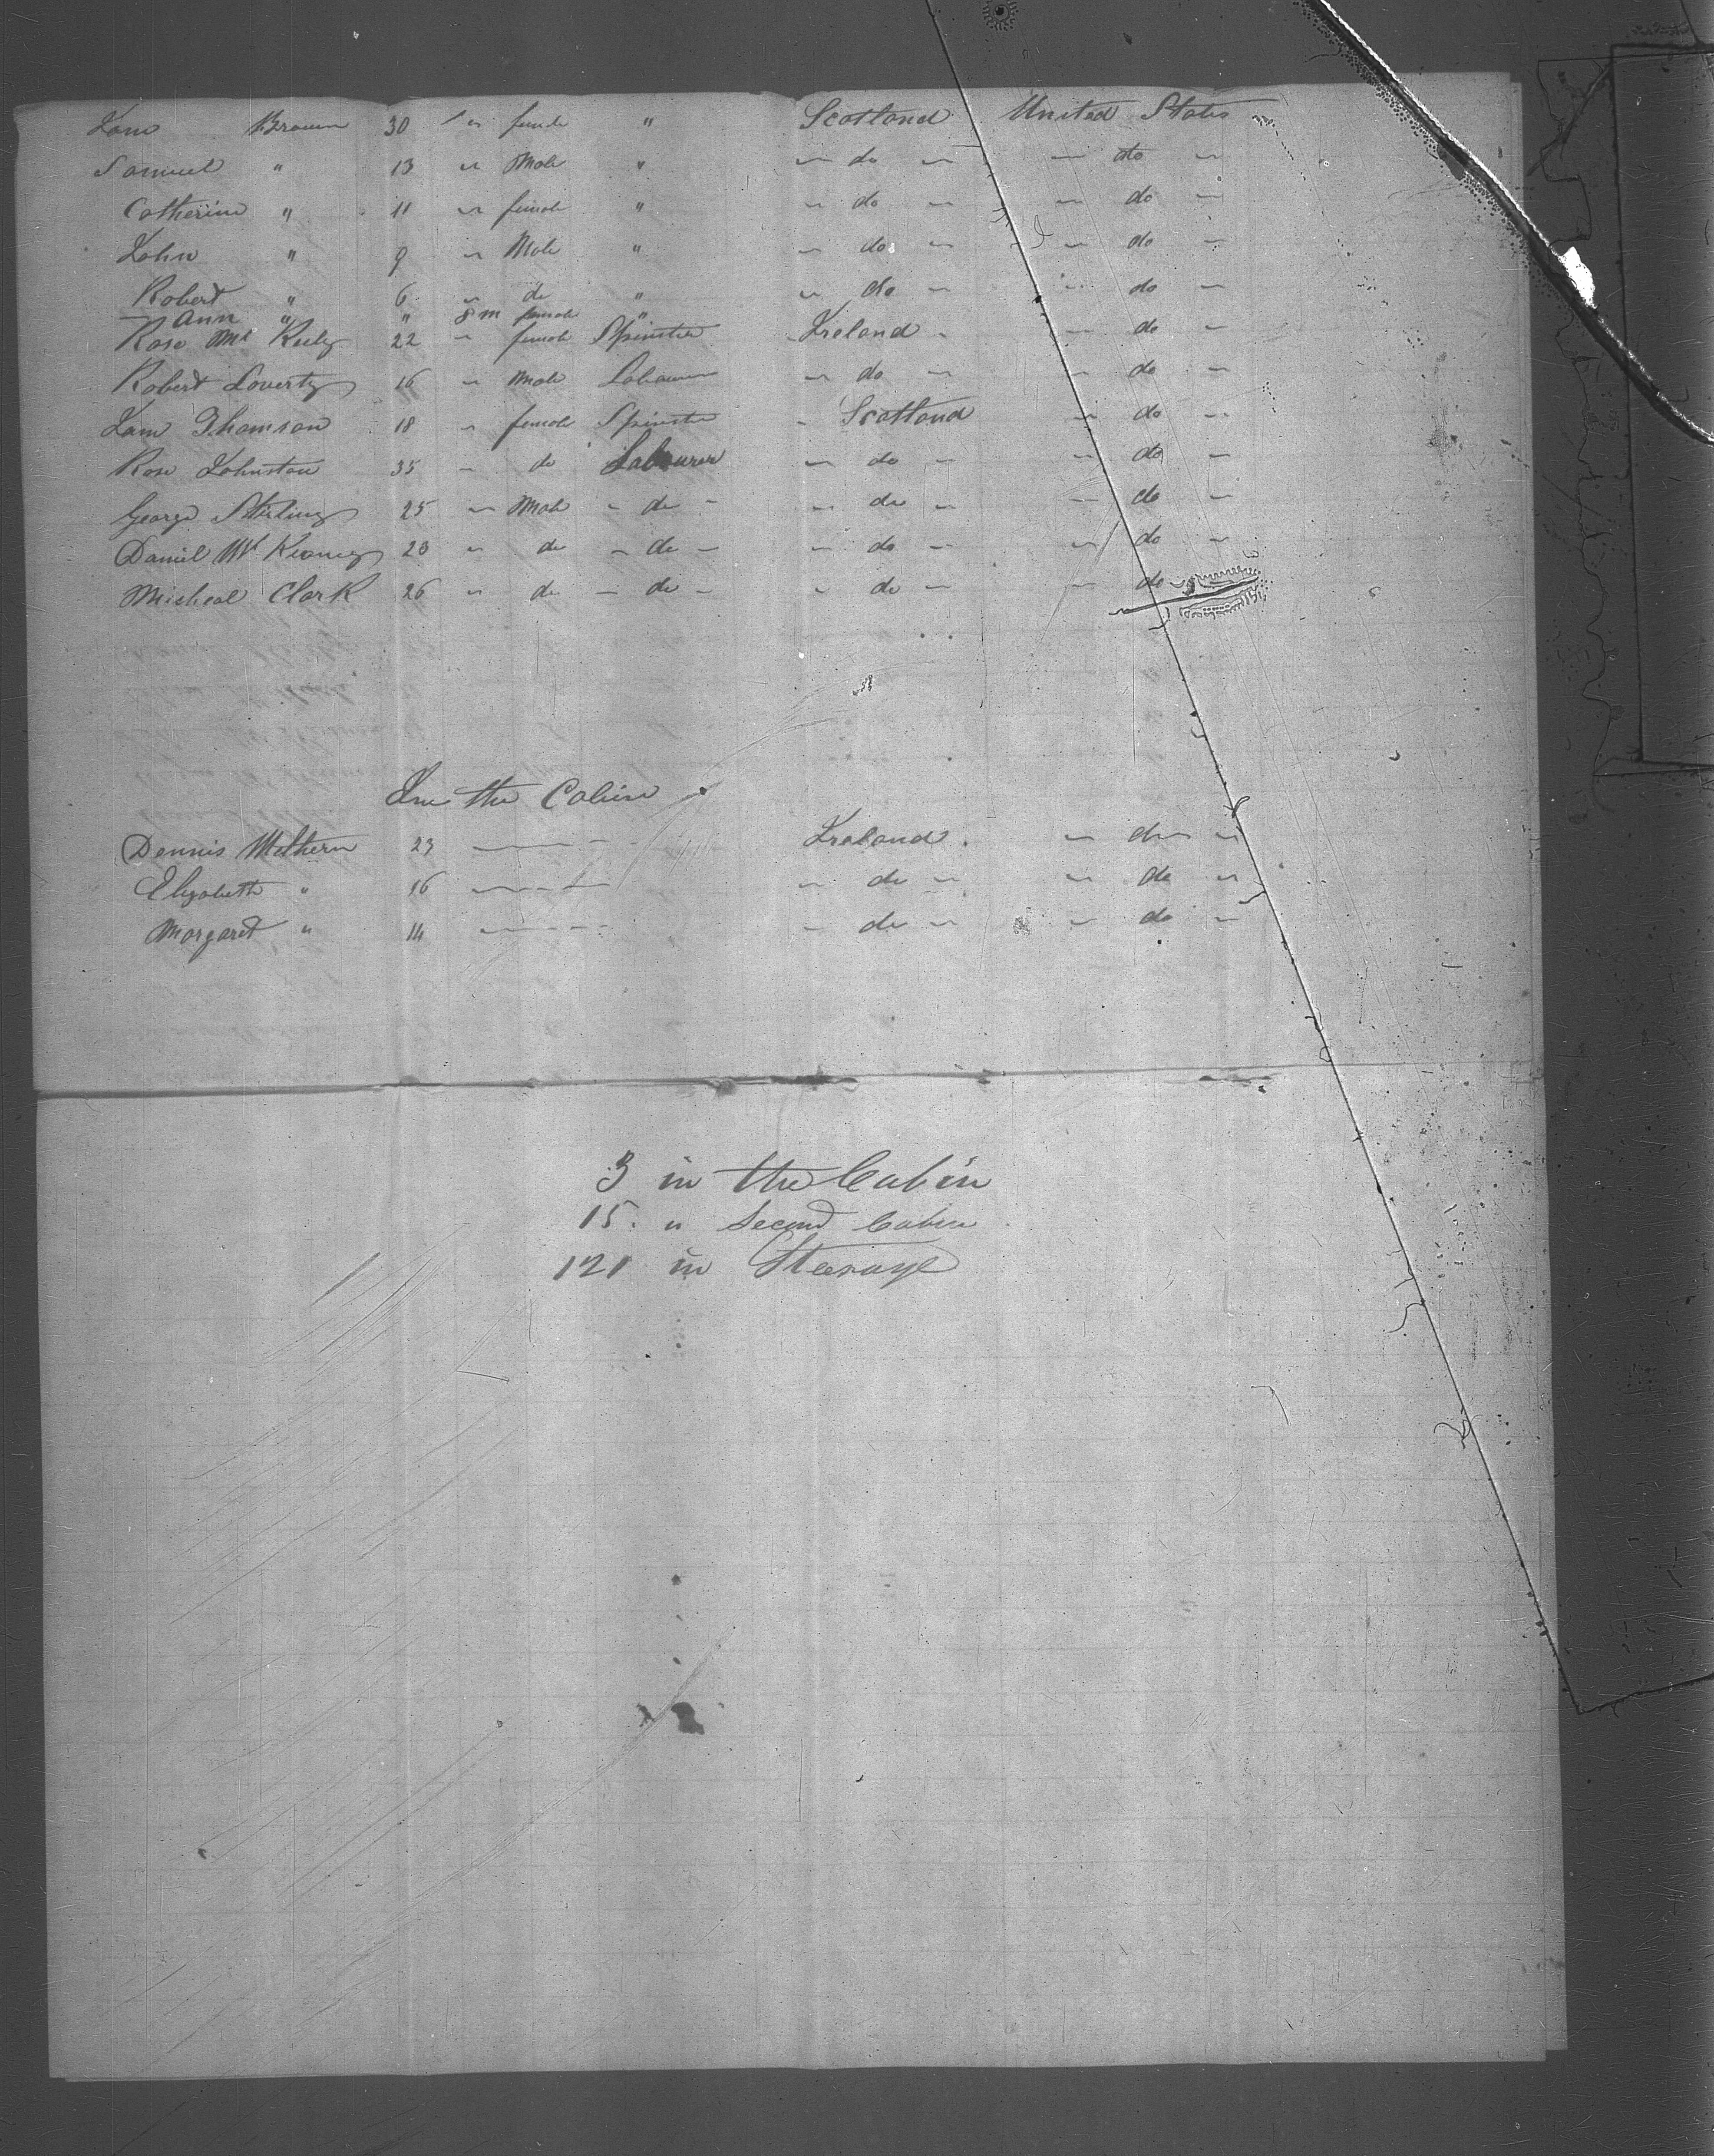 Jane Brown 30 " female " Scotland United States
Samuel " 13 " Male " " do " " do "
Catherine " 11 " female " " do " " do "
John " 9 " Male " " do " " do "
Robert " 6 " do " " do " " do "
Ann " " 8 m female "
Rose Mc 22 " female Spinster Ireland " do "
Robert Loverty 16 " Male Labourer " do " " do "
Jane Thomson 18 " female Spinster Scotland " do "
Rose Johnston 35 " do Labourer " do " " do "
George Stirling 25 " Male " do " " do " " do "
Daniel Mc " do " do " " do " " do "
Micheal Clark 26 " do " do " " do " " do "
In the Cabin
Dennis 23 Ireland " do "
Elizabeth " 16 " do " " do "
Margaret " 14 " do " " do "
3 in the Cabin
15 " Second Cabin
121 in Steerage